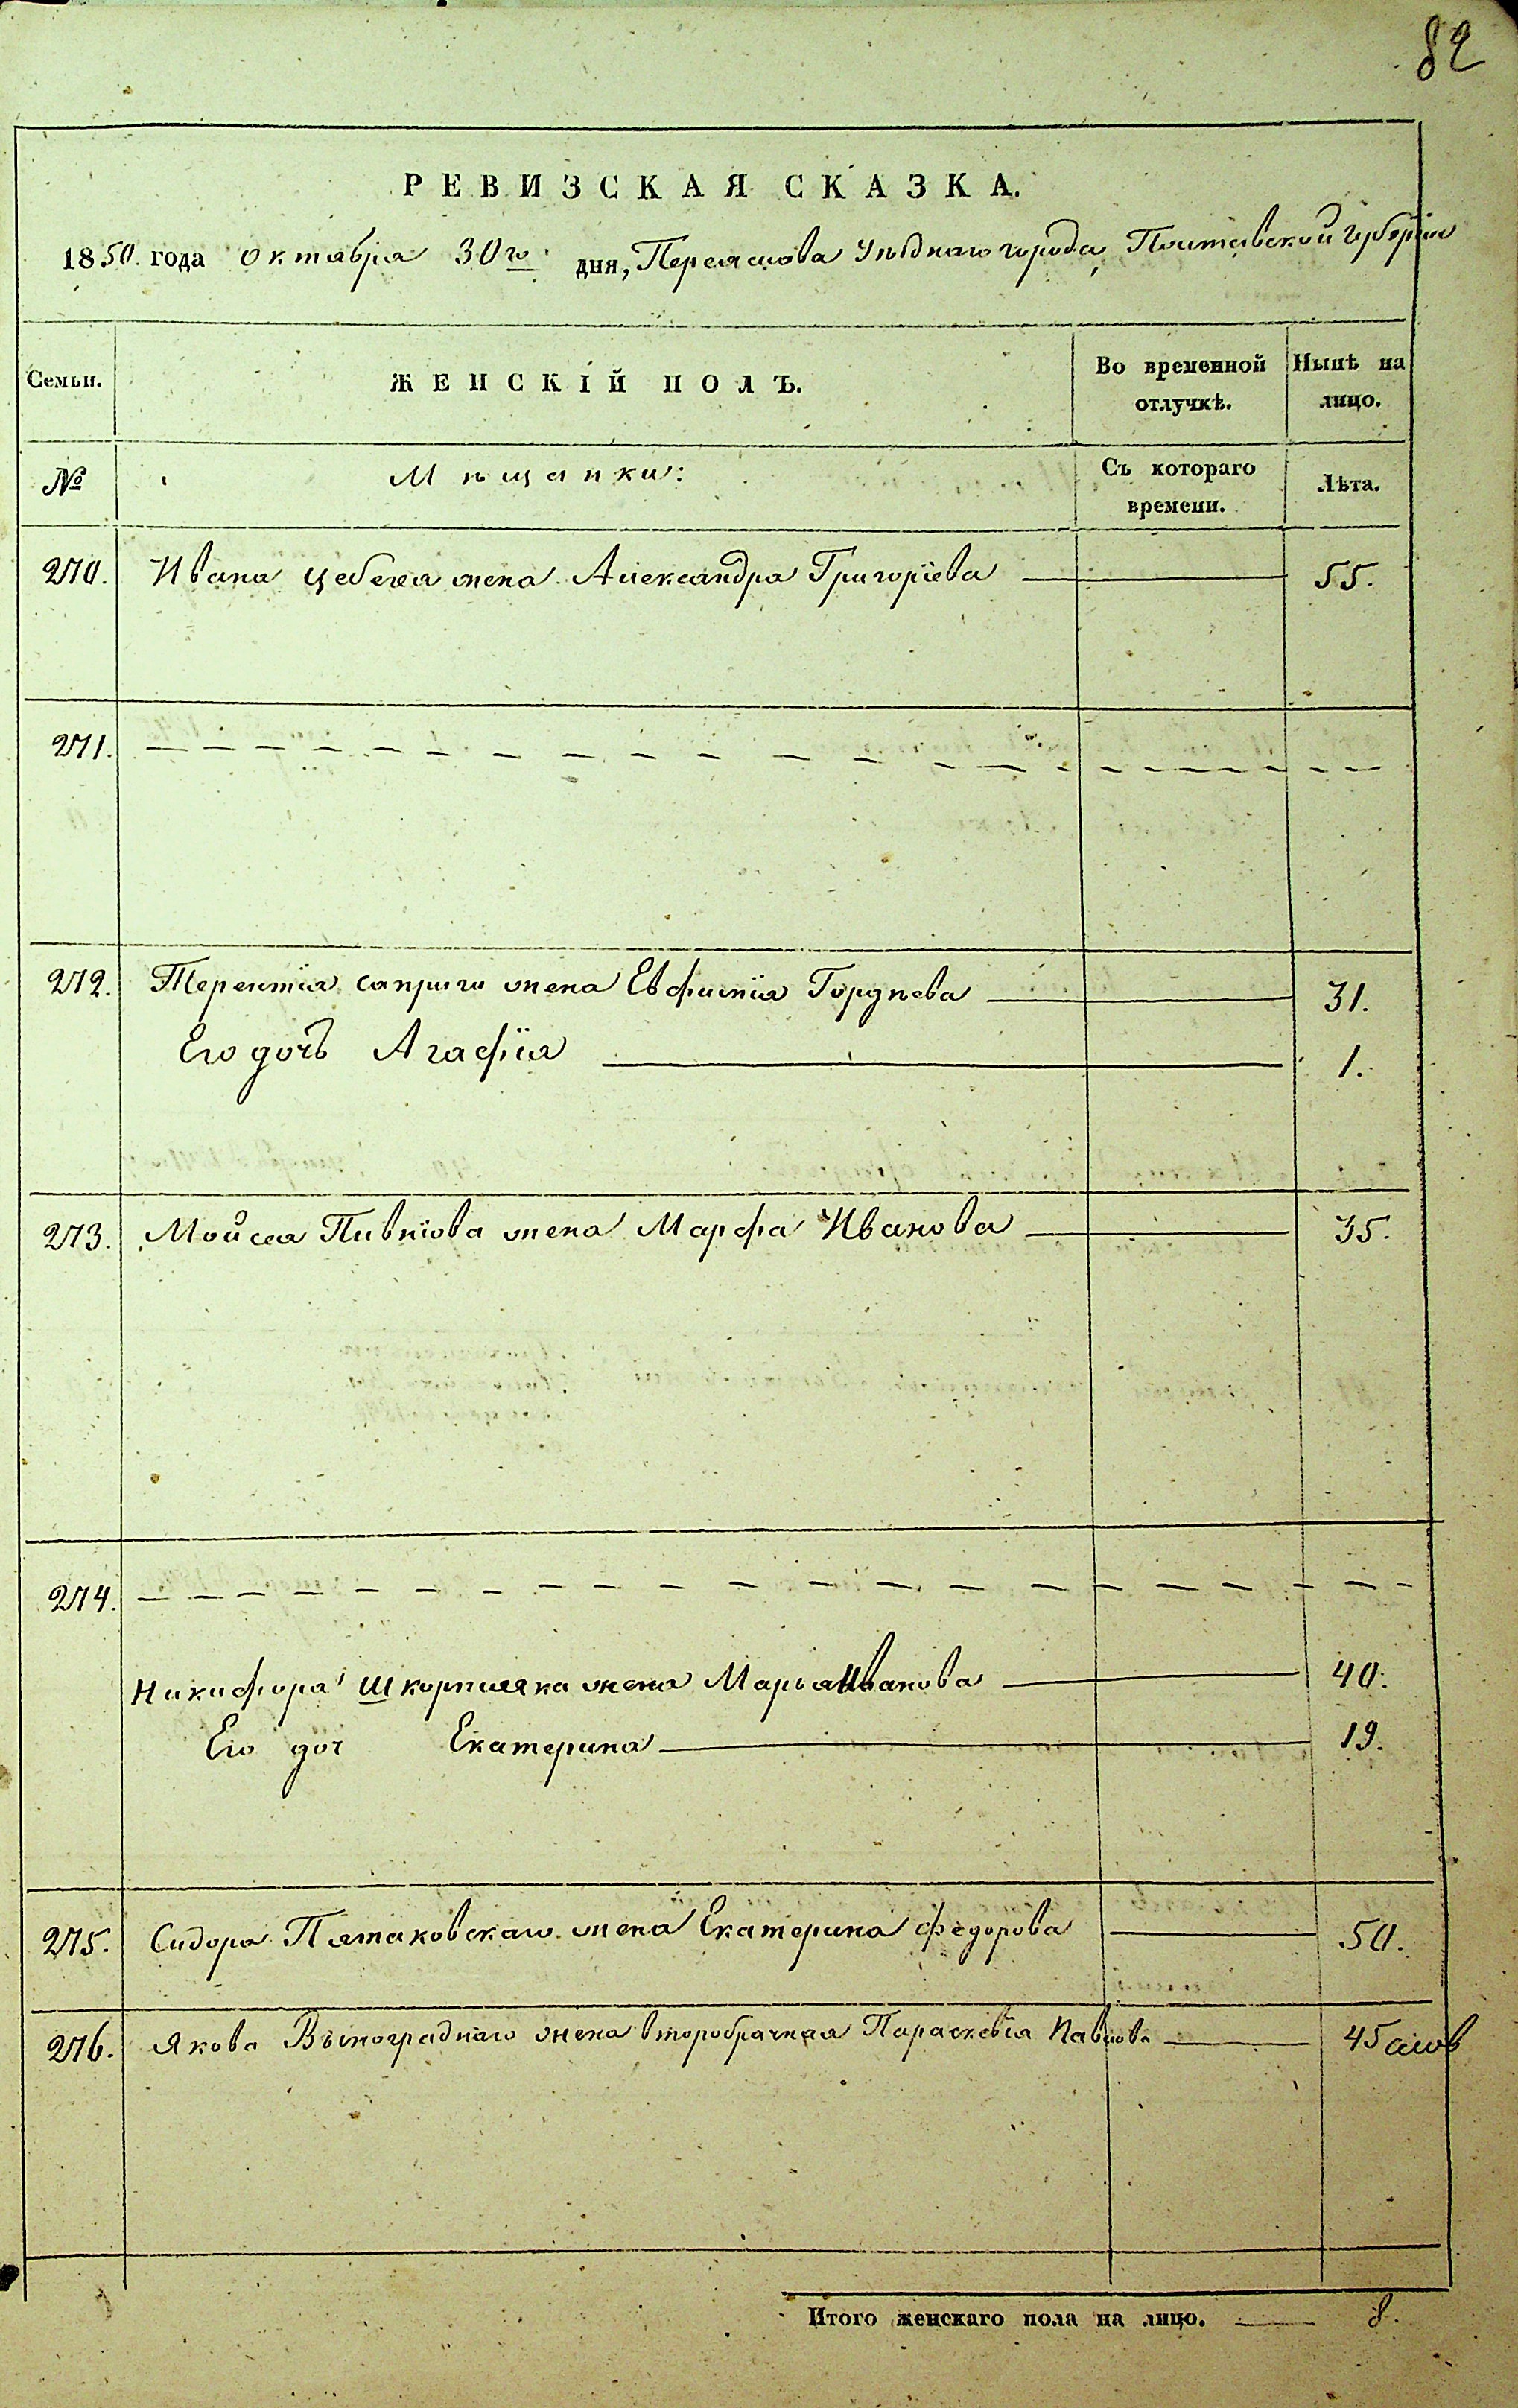 82
РЕВИЗСКАЯ СКАЗКА.
1850. года октября 30го дня, Переяслова Уѣзднаго города, Полтавской Губерніи
Семьи.
ЖЕНСКІЙ ПОЛЪ.
Во временной отлучкѣ.
Нынѣ на лицо.
№
Мѣщанки:
Съ котораго времени.
Лѣта.
270. Ивана Цебега жена Александра Григоріева 55.
271.
272. Терентія Саприги жена Евфимія Гордѣева 31.
Его дочь Агафія 1.
273. Мойсея Пивнюва жена Марфа Иванова 35.
274.
Никифора Шкормляка жена Марья Иванова 40.
Его доч Екатерина 19.
275. Сидора Пятаковскаго жена Екатерина Федорова 50.
276. Якова Вынограднаго жена второбрачная Параскевія Павлова 45
Итого женскаго пола на лицо. 8.